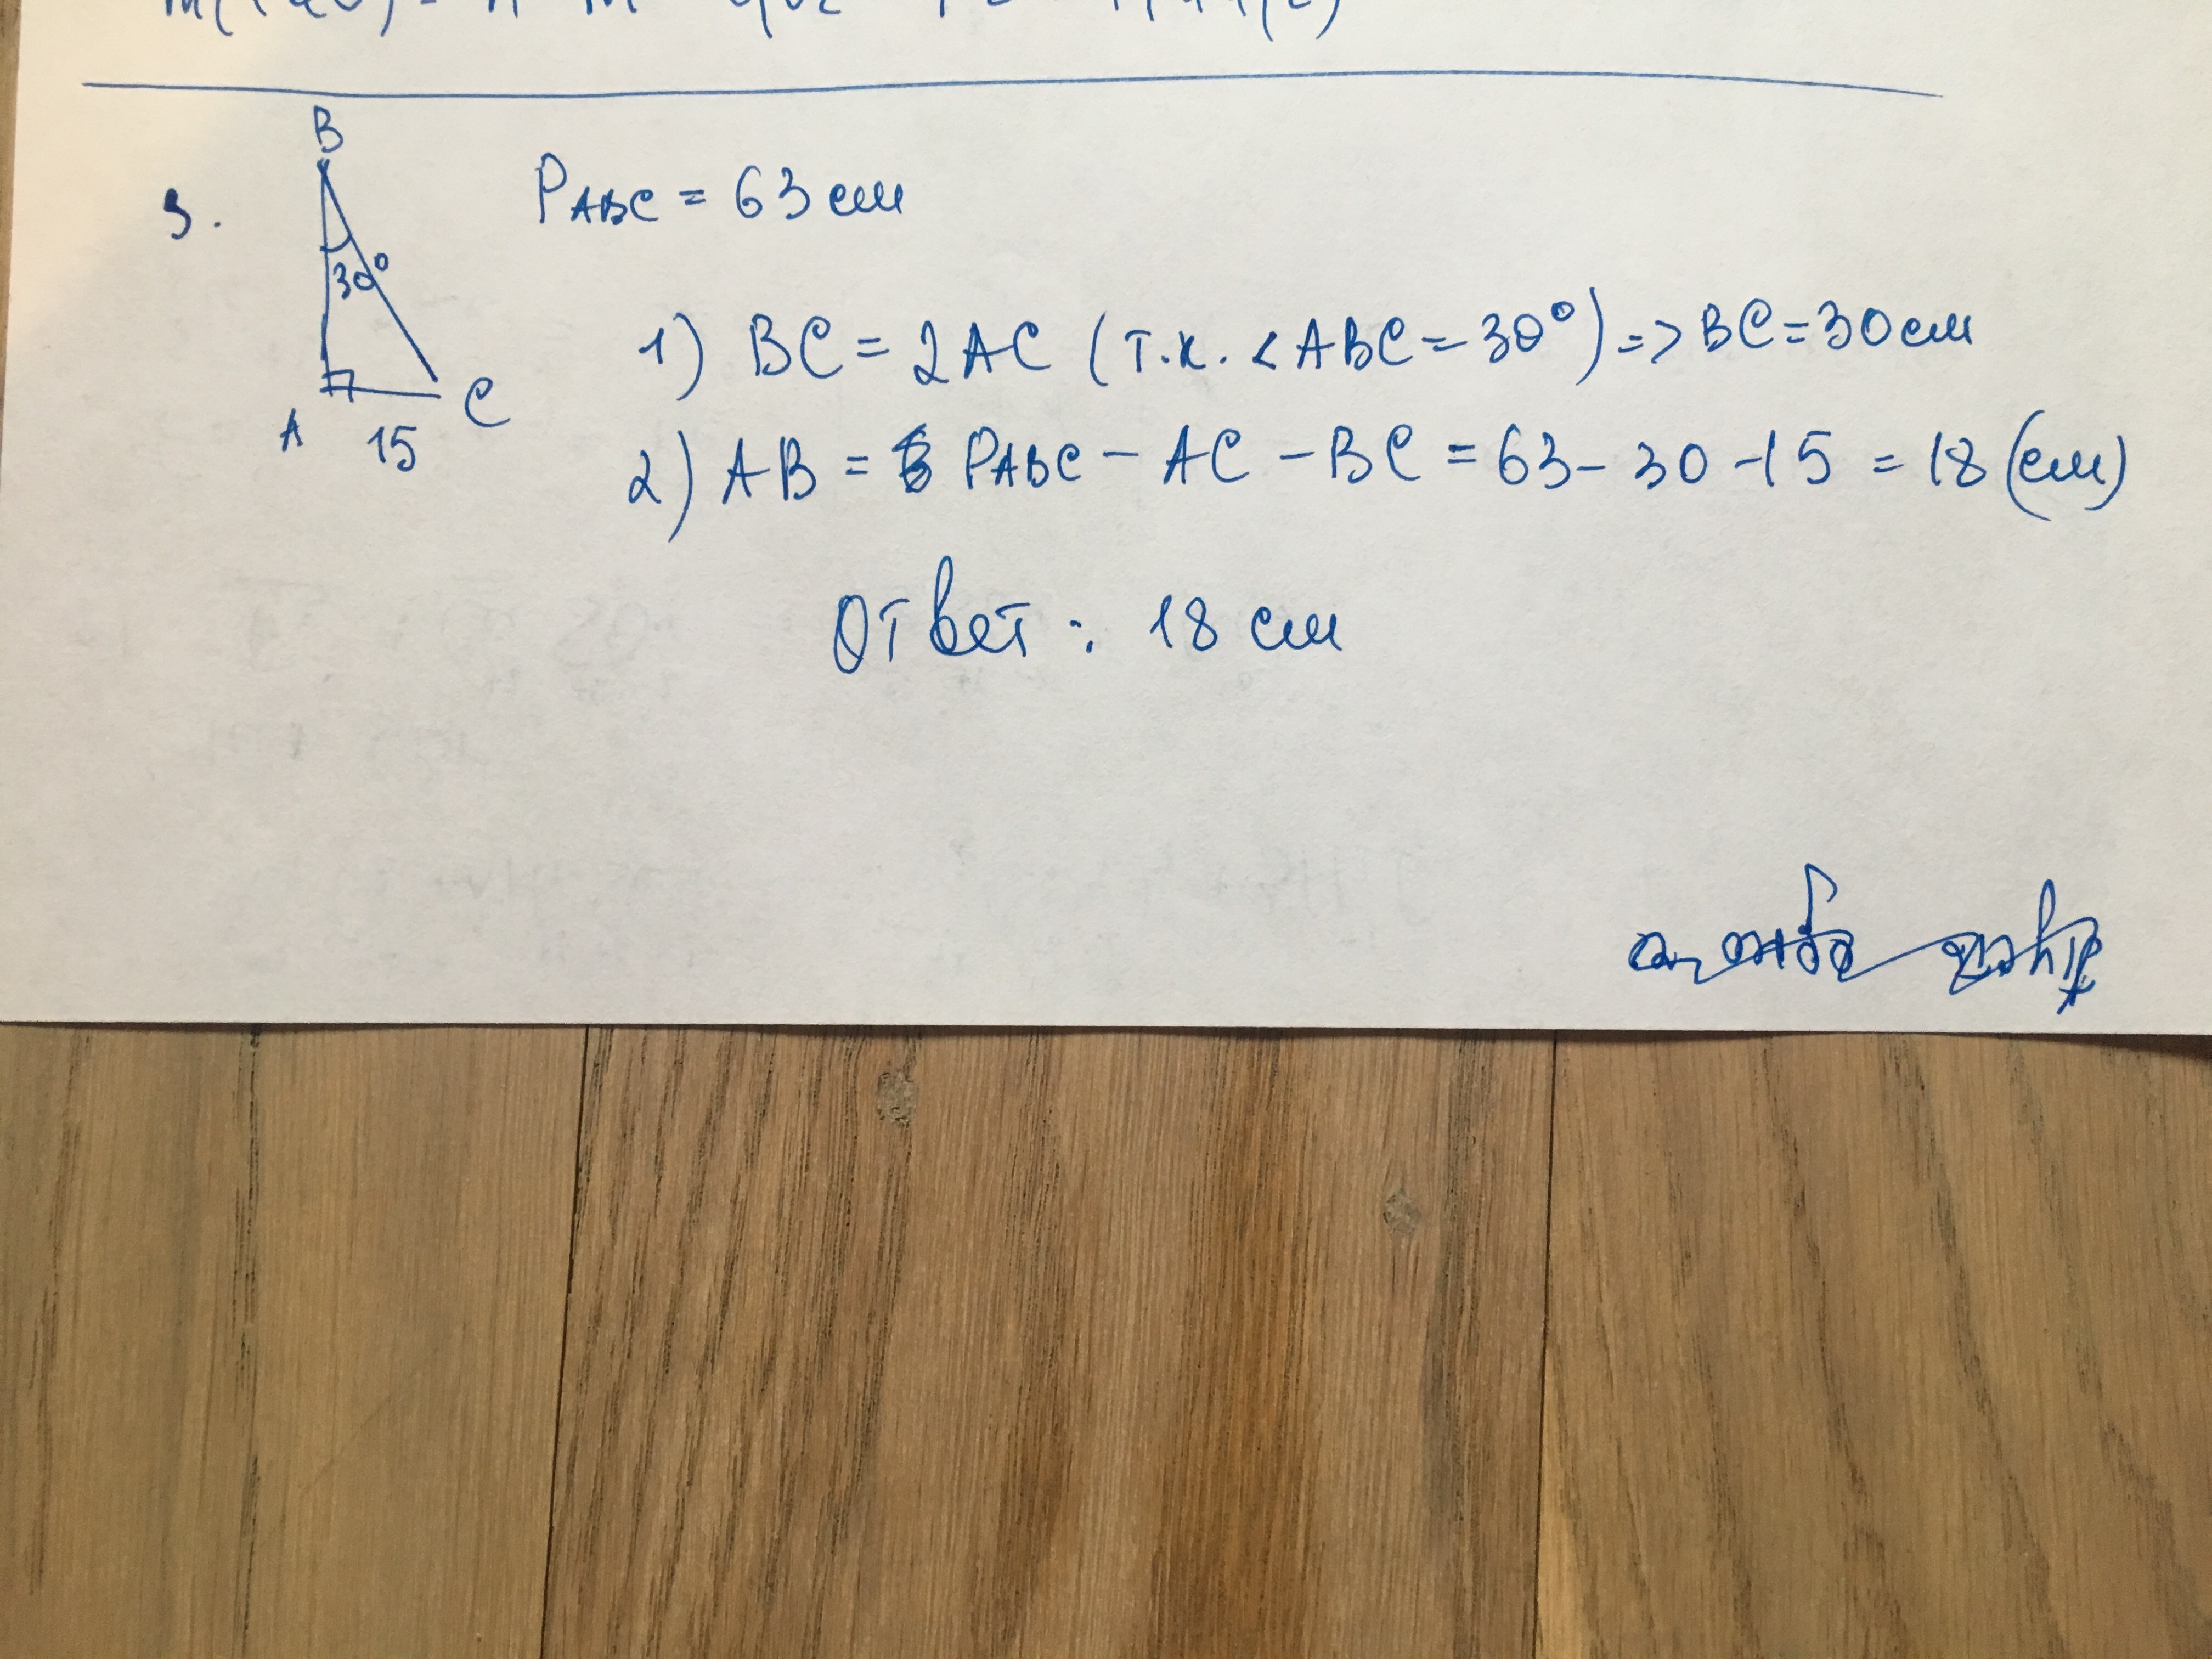 B
3.
30°
A
15
C
PABC = 63 см
1) BC = 2AC (т.к. <ABC = 30°) => BC = 30 см
2) AB = PABC - AC - BC = 63 - 30 - 15 = 18 (см)
Ответ: 18 см